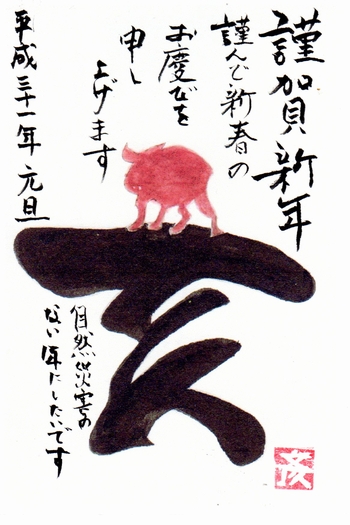 謹賀新年
謹んで新春の
お慶びを
申し
上げます
平成三十一年 元旦
亥
自然災害の
ない年にしたいです
亥